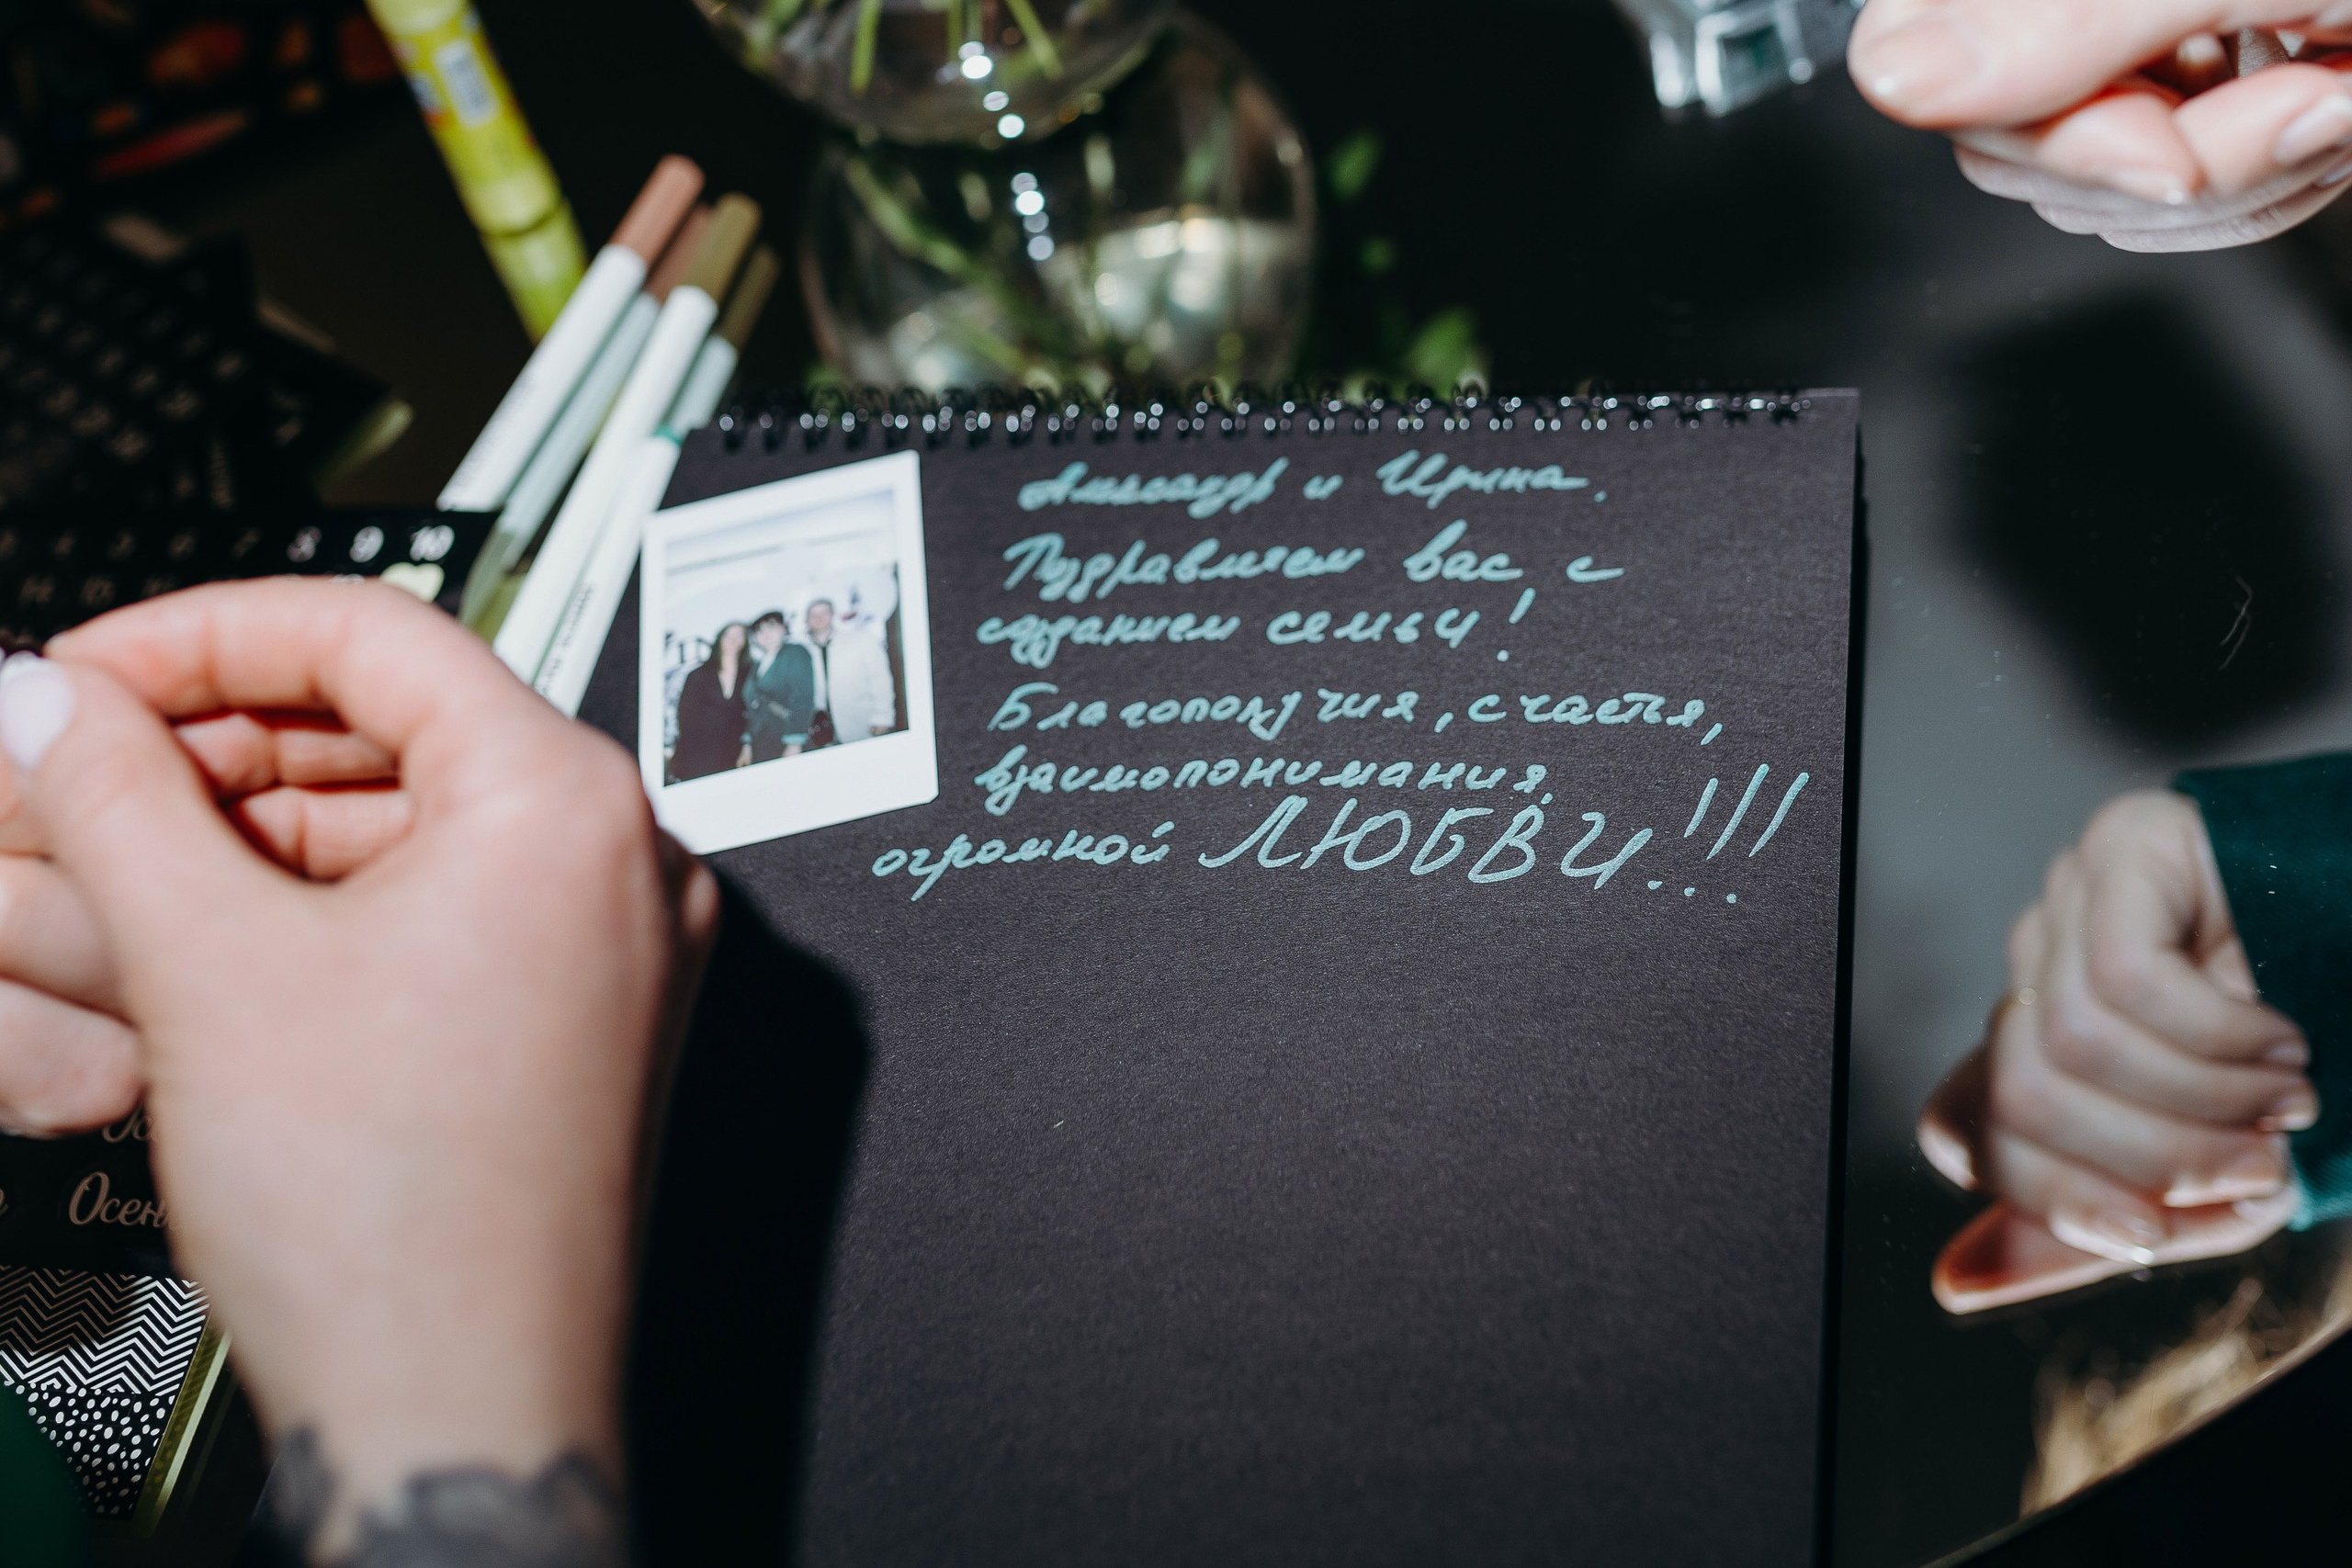 Александр и Ирина.
Поздравляем вас с
созданием семьи!
Благополучия, счастья,
взаимопонимания,
огромной ЛЮБВИ!!!
8 9 10
Осень